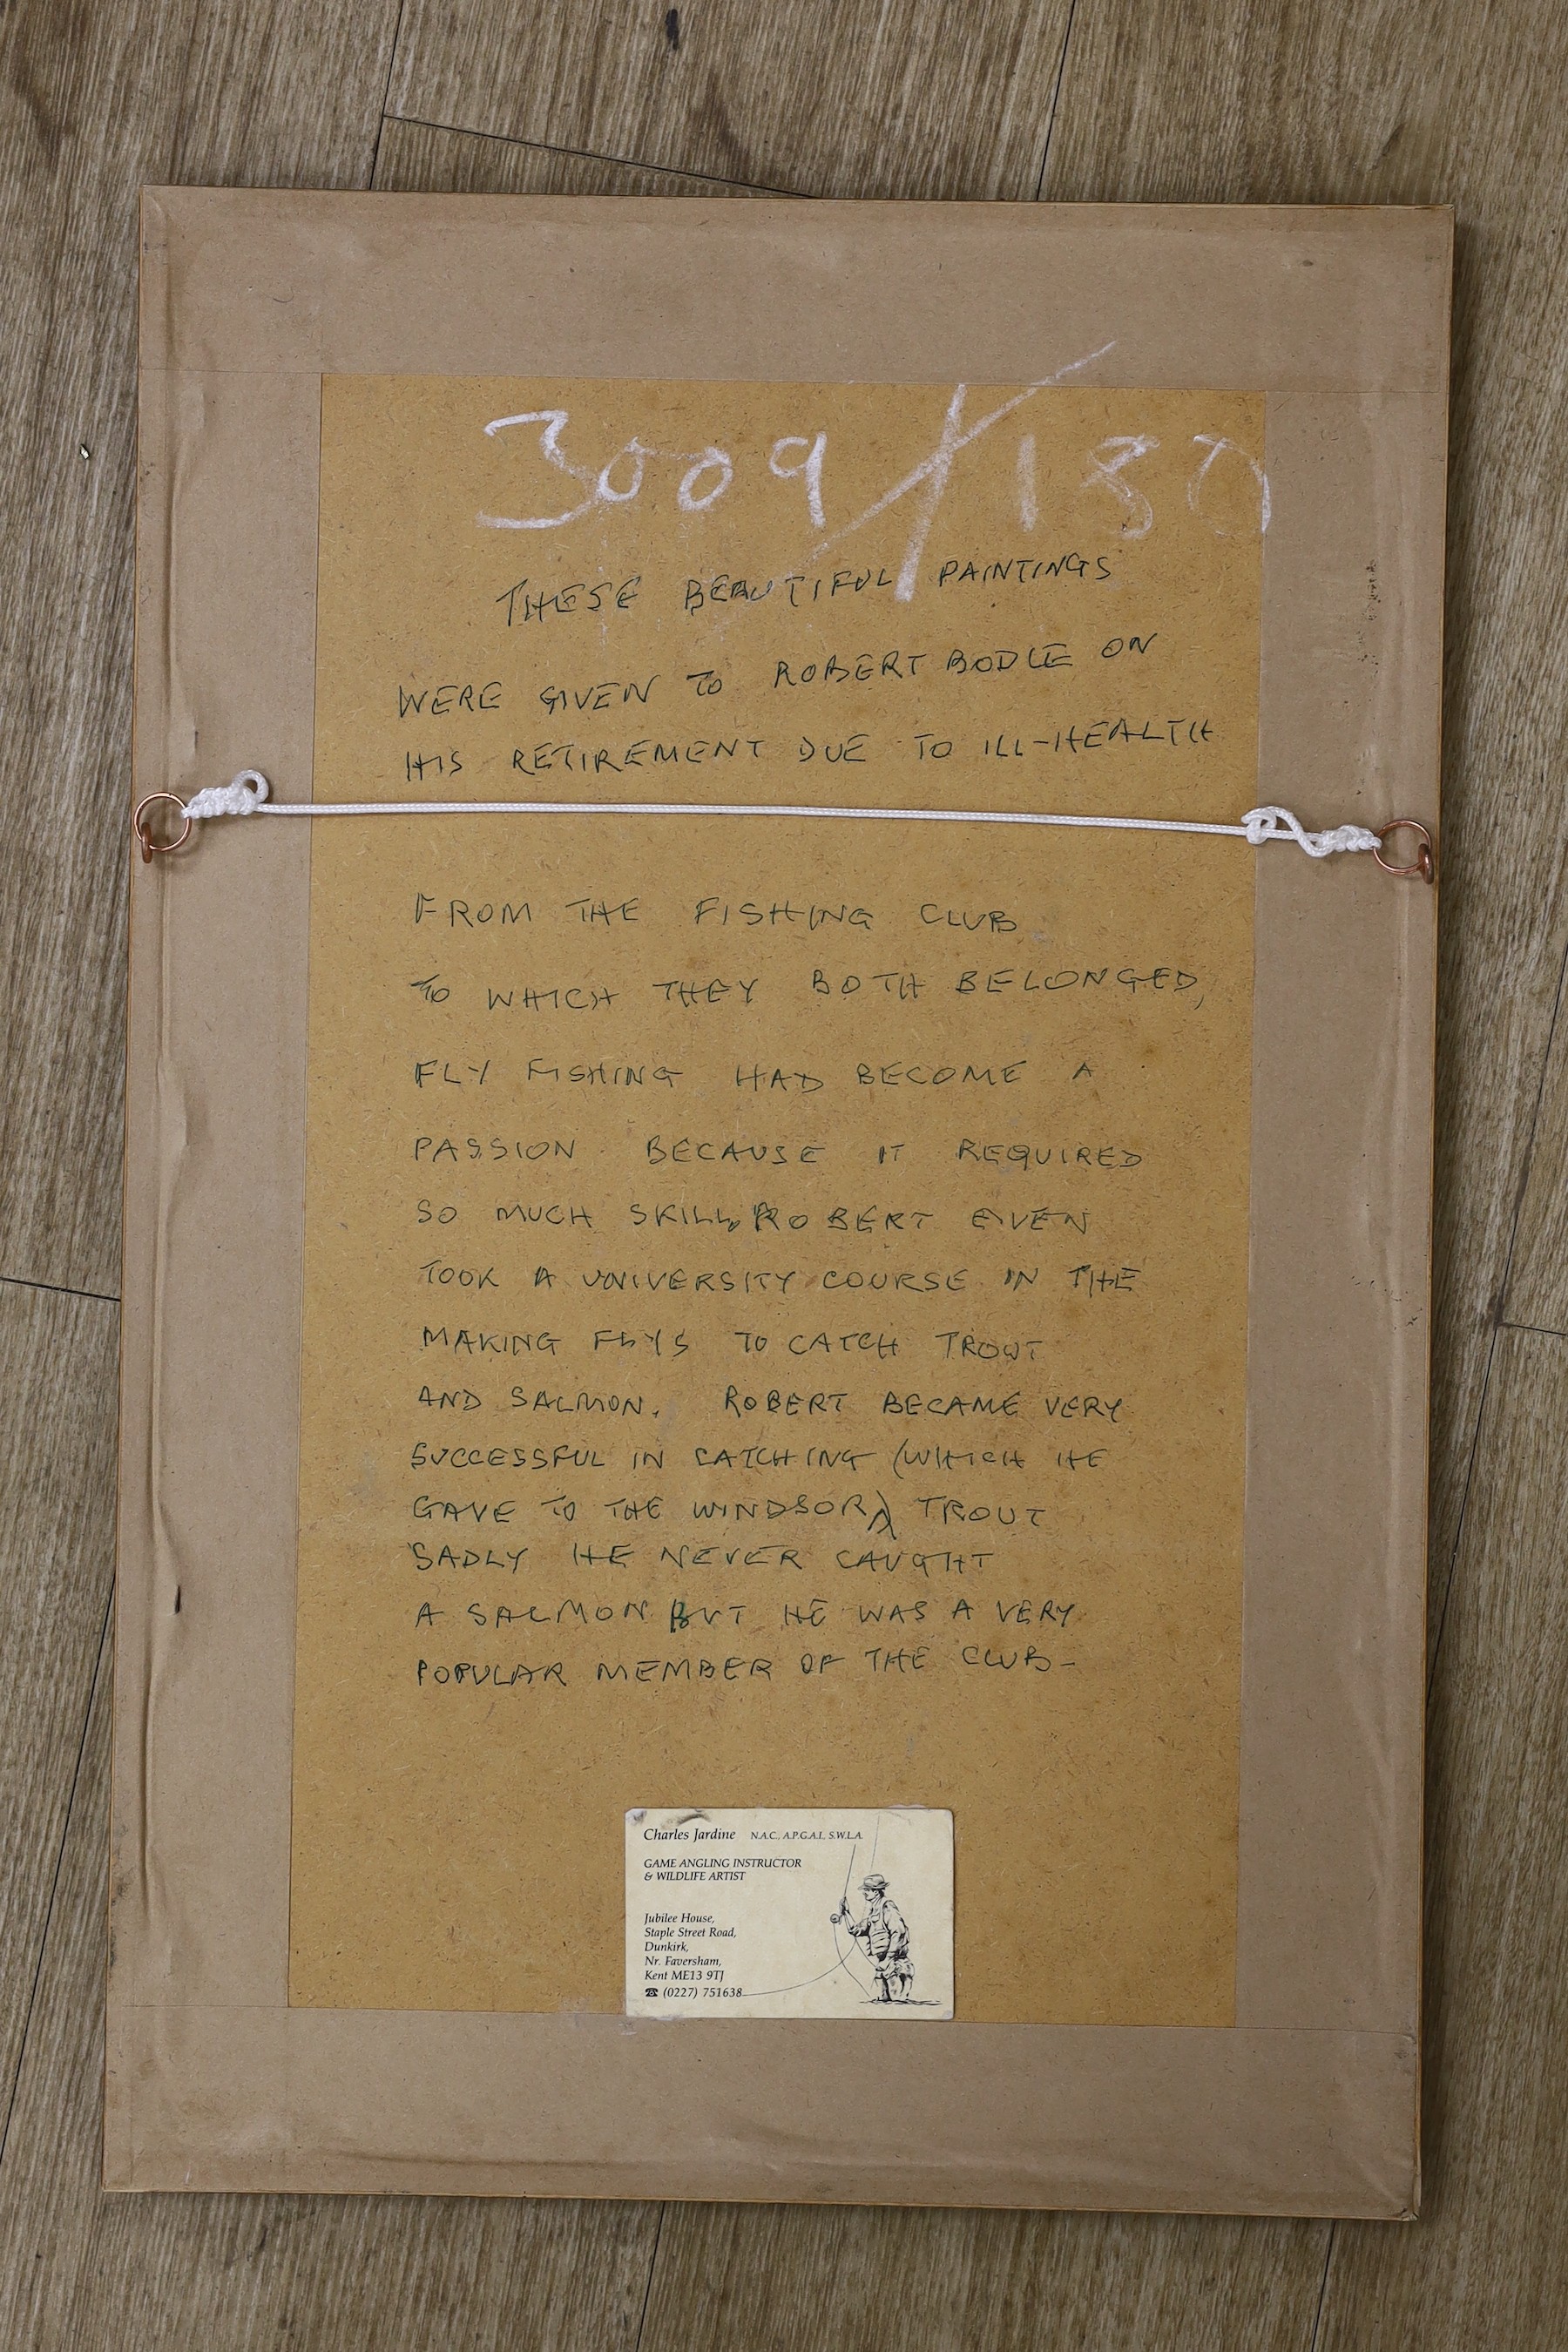 3009/187
THESE BEAUTIFUL PAINTINGS
WERE GIVEN TO ROBERT BODLE ON
HIS RETIREMENT DUE TO ILL-HEALTH
FROM THE FISHING CLUB
TO WHICH THEY BOTH BELONGED,
FLY FISHING HAD BECOME A
PASSION BECAUSE IT REQUIRED
SO MUCH SKILL, ROBERT EVEN
TOOK A UNIVERSITY COURSE IN THE
MAKING FLYS TO CATCH TROUT
AND SALMON. ROBERT BECAME VERY
SUCCESSFUL IN CATCHING (WHICH HE
GAVE TO THE WINDSOR) TROUT
SADLY HE NEVER CAUGHT
A SALMON BUT HE WAS A VERY
POPULAR MEMBER OF THE CLUB-
Charles Jardine N.A.C., A.P.G.A.I., S.W.L.A.
GAME ANGLING INSTRUCTOR
& WILDLIFE ARTIST
Jubilee House,
Staple Street Road,
Dunkirk,
Nr. Faversham,
Kent ME13 9TJ
☎ (0227) 751638